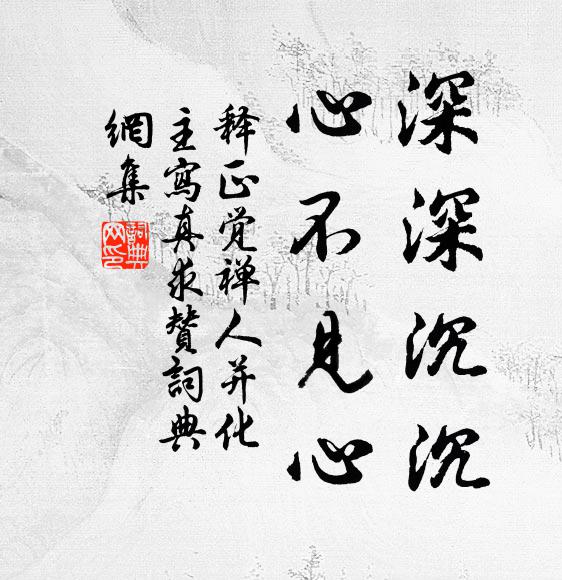 深深沉沉
心不见心
释正觉禅人并化
主寫真求贊詞典
網集
詞典網印